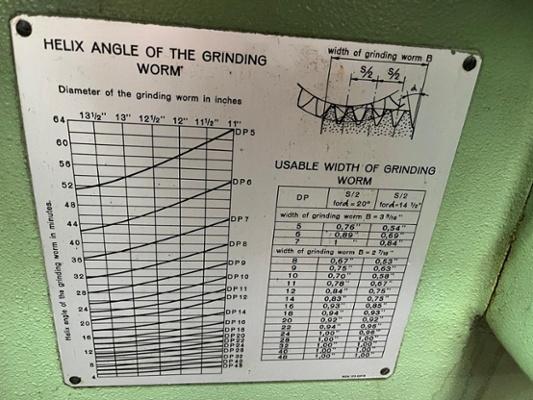 HELIX ANGLE OF THE GRINDING
WORM
Diameter of the grinding worm in inches
13 1/2" 13" 12 1/2" 12" 11 1/2" 11"
64
60
56
52
48
44
40
36
32
28
24
20
16
12
8
4
Helix angle of the grinding worm in minutes.
DP5
DP6
DP7
DP8
DP9
DP10
DP11
DP12
DP14
DP16
DP18
DP20
DP22
DP24
DP28
DP32
DP40
DP48
width of grinding worm B
S/2 S/2
α
USABLE WIDTH OF GRINDING
WORM
DP S/2 for α = 20° S/2 for α = 14 1/2°
width of grinding worm B = 3 5/16"
5 0,76" 0,54"
6 0,89" 0,69"
7 1 " 0,84"
width of grinding worm B = 2 7/16"
8 0,67" 0,53"
9 0,75" 0,63"
10 0,70" 0,58"
11 0,78" 0,67"
12 0,84" 0,75"
14 0,83" 0,75"
16 0,93" 0,85"
18 0,94" 0,93"
20 0,92" 0,92"
22 0,94" 0,95"
24 1,00" 0,96"
28 1,00" 1,00"
32 1,00" 1,00"
40 1,00" 1,00"
48 1,00" 1,00"